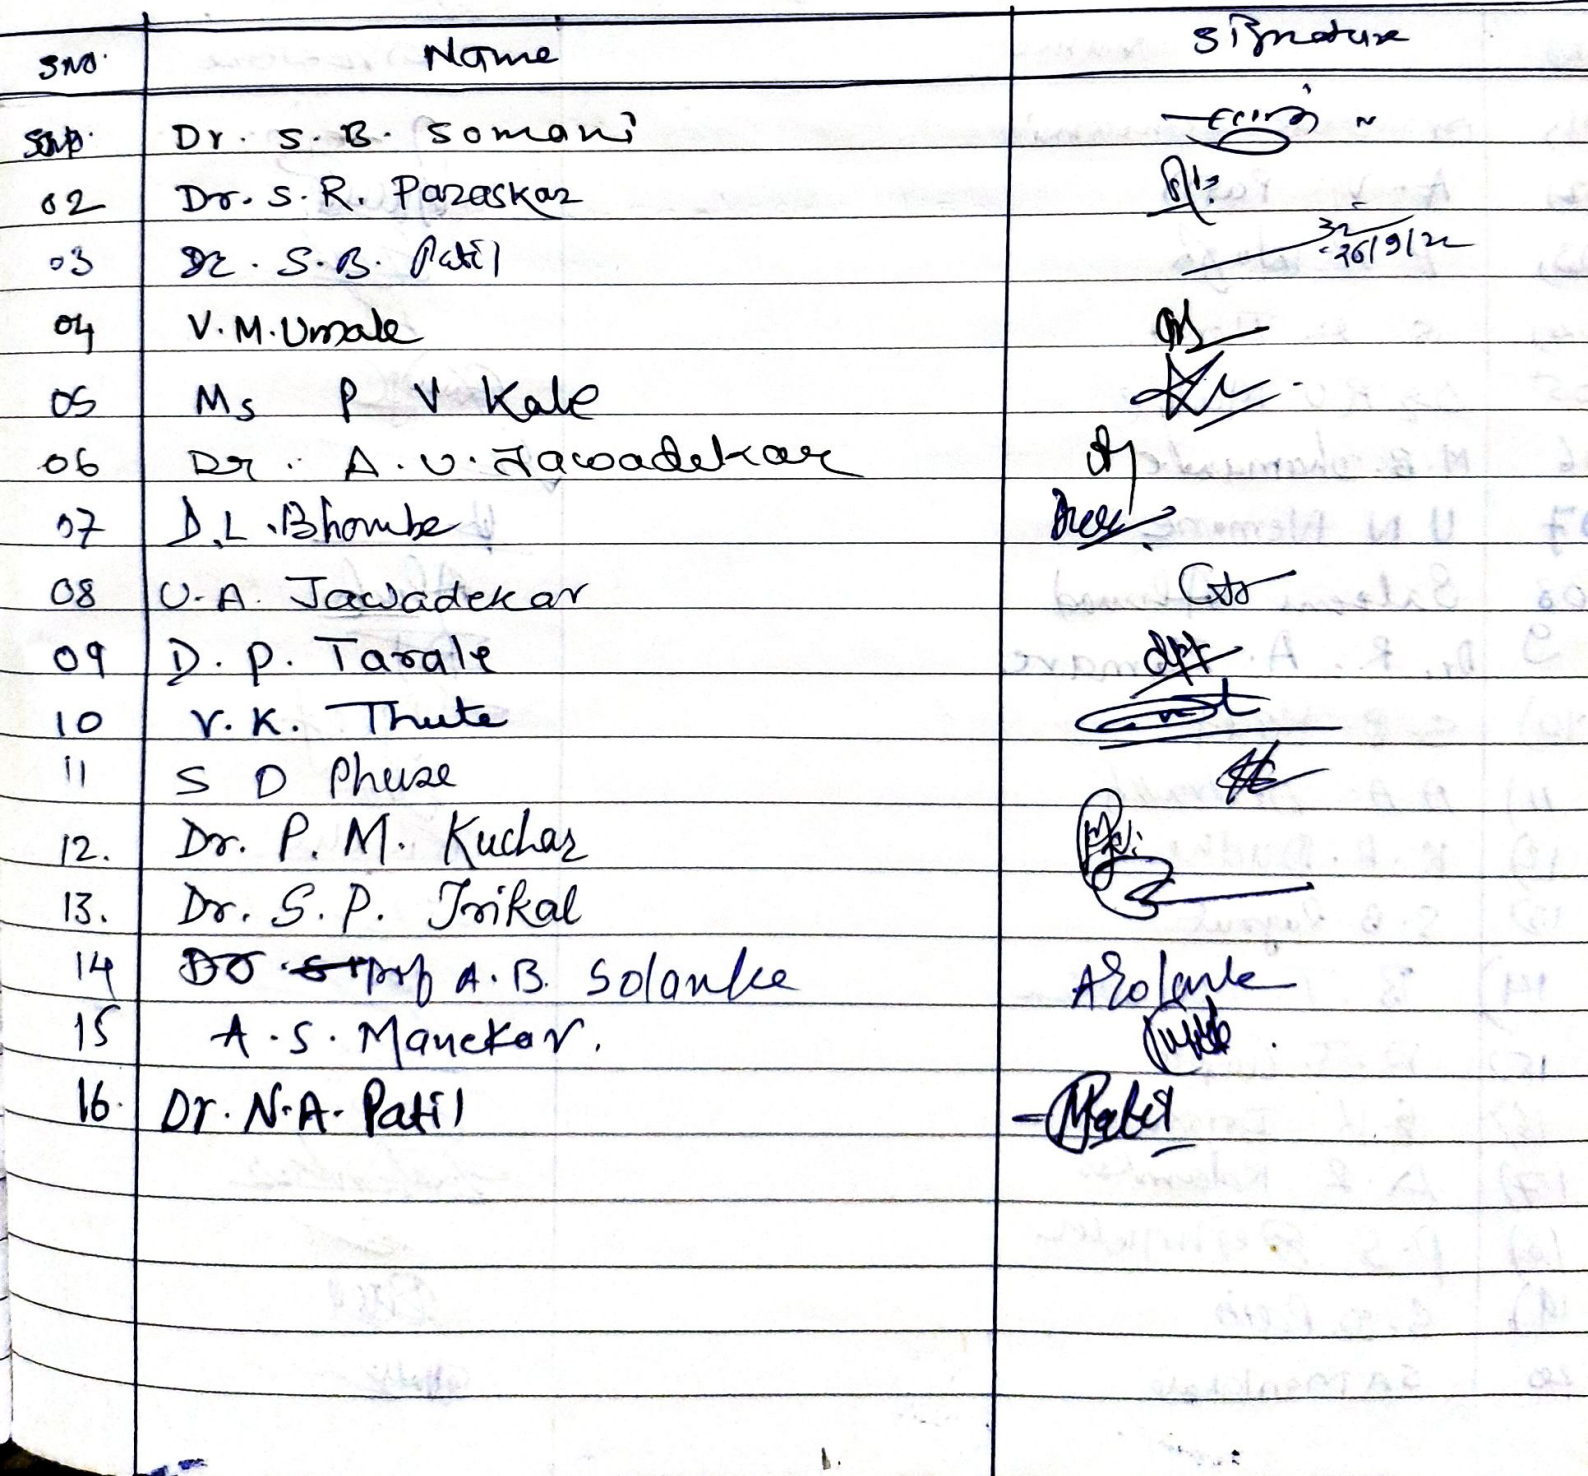 SNo. Name Signature
SNo. Dr. S. B. Somani
02 Dr. S. R. Paraskar
03 Dr. S. B. Patil 26/9/22
04 V. M. Umale
05 Ms P V Kale
06 Dr. A. U. Jawadekar
07 D. L. Bhombe
08 U. A. Jawadekar
09 D. P. Tarale
10 V. K. Thute
11 S D Phuse
12. Dr. P. M. Kuchar
13. Dr. S. P. Trikal
14 Prof A. B. Solanke ASolanke
15 A. S. Manekar.
16. Dr. N. A. Patil Patil